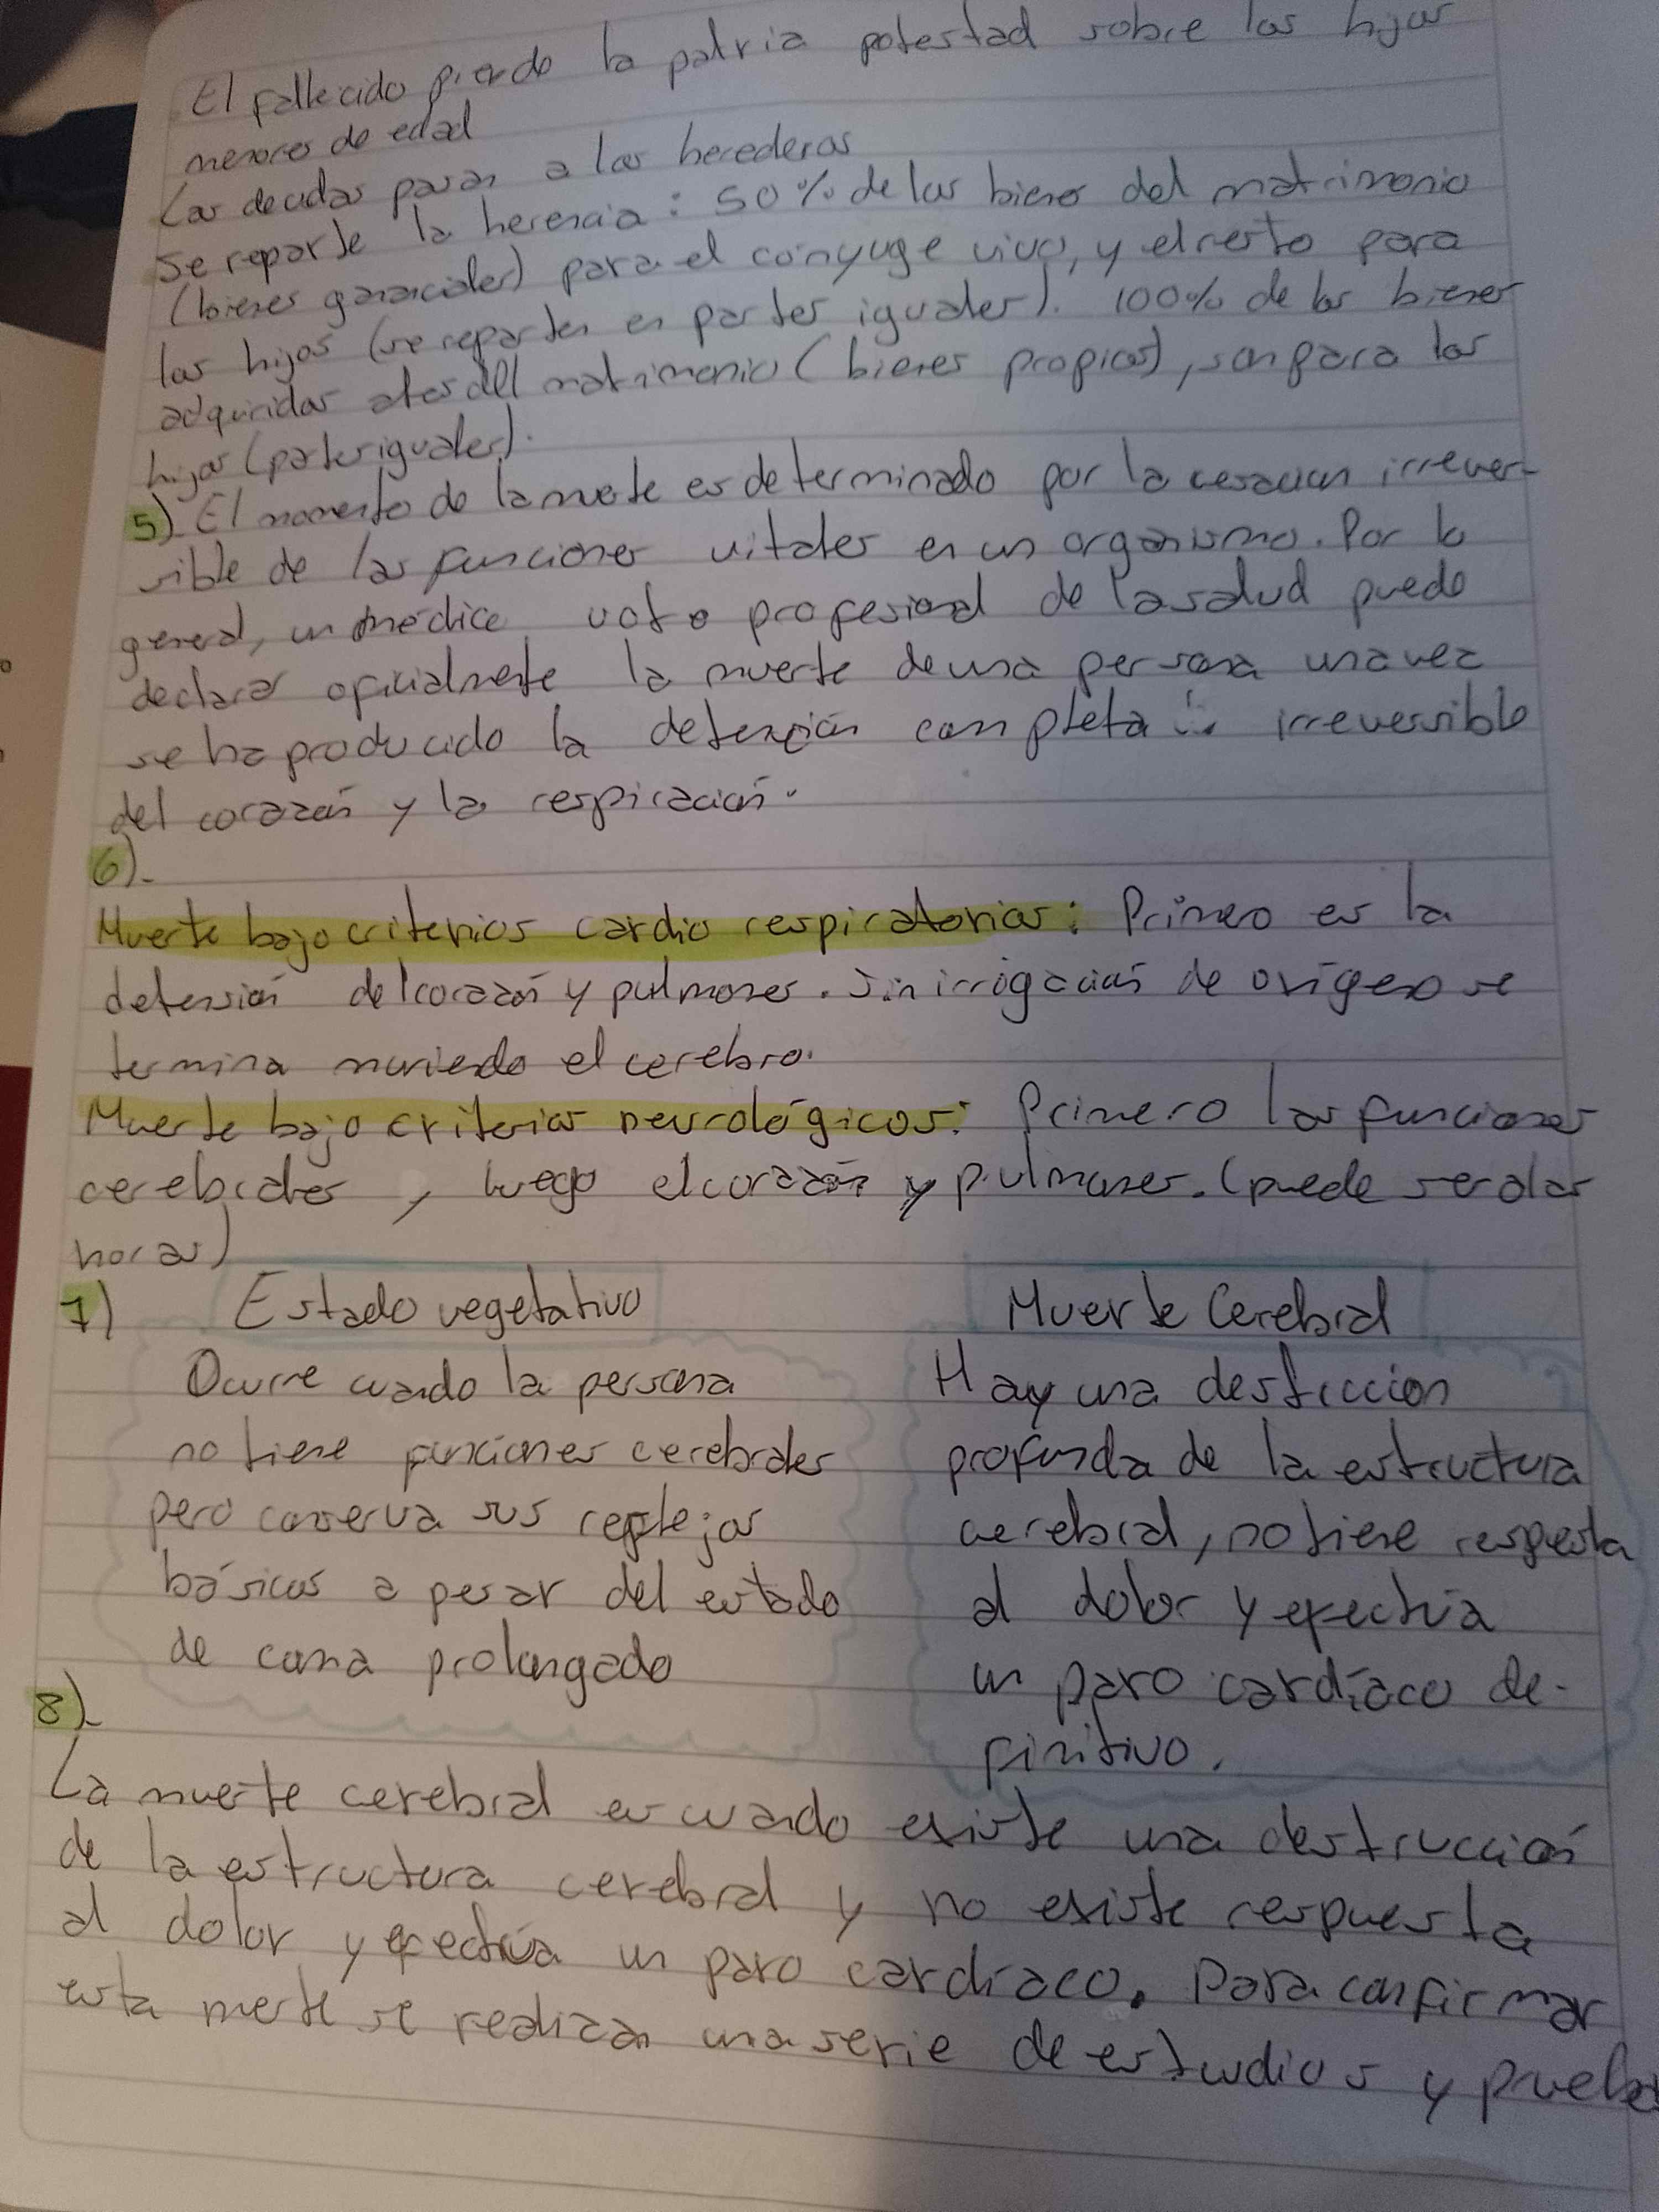 El fallecido pierde la patria potestad sobre los hijos
menores de edad
Las deudas pasan a los herederos
Se reparte la herencia: 50% de los bienes del matrimonio
(bienes gananciales) para el cónyuge vivo, y el resto para
los hijos (se reparten en partes iguales). 100% de los bienes
adquiridos ates del matrimonio (bienes propios), son para los
hijos (partes iguales).
5). El momento de la muerte es determinado por la cesación irrever-
sible de las funciones vitales en un organismo. Por lo
general, un médico u otro profesional de la salud puede
declarar oficialmente la muerte de una persona una vez
se ha producido la detención completa irreversible
del corazón y la respiración.
6).
Muerte bajo criterios cardio respiratorios: Primero es la
detensión del corazón y pulmones. Sin irrigación de oxígeno se
termina muriendo el cerebro.
Muerte bajo criterios neurológicos: Primero las funciones
cerebrales, luego el corazón y pulmones. (puede ser a las
horas)
7) Estado vegetativo Muerte Cerebral
Ocurre cuando la persona Hay una destrucción
no tiene funciones cerebrales profunda de la estructura
pero conserva sus reflejos cerebral, no tiene respuesta
básicos a pesar del estado al dolor y efectúa
de coma prolongado un paro cardíaco de-
finitivo.
8).
La muerte cerebral es cuando existe una destrucción
de la estructura cerebral y no existe respuesta
al dolor y efectúa un paro cardíaco. Para confirmar
esta muerte se realizan una serie de estudios y pruebas